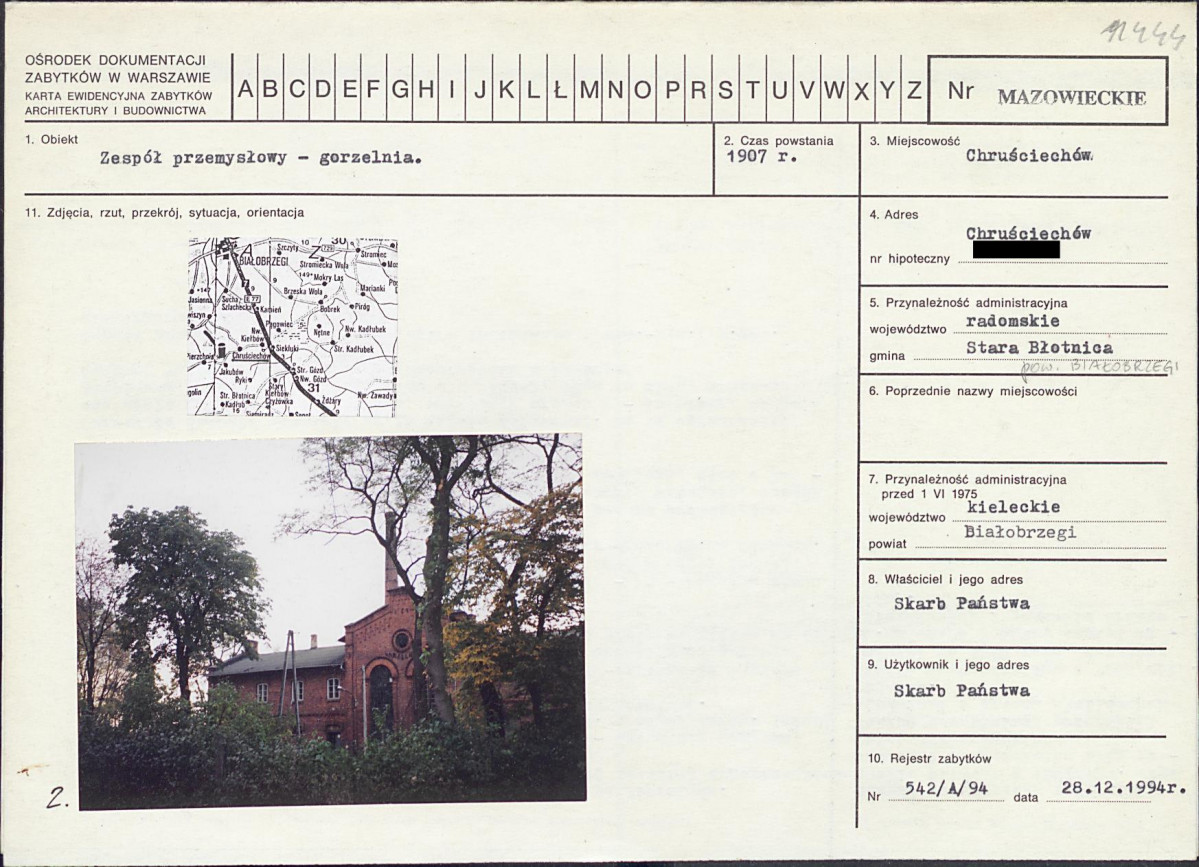 11444
OŚRODEK DOKUMENTACJI
ZABYTKÓW W WARSZAWIE
KARTA EWIDENCYJNA ZABYTKÓW
ARCHITEKTURY I BUDOWNICTWA
A B C D E F G H I J K L Ł M N O P R S T U V W X Y Z
Nr MAZOWIECKIE
1. Obiekt
Zespół przemysłowy - gorzelnia.
2. Czas powstania
1907 r.
3. Miejscowość
Chruściechów
11. Zdjęcia, rzut, przekrój, sytuacja, orientacja
4. Adres
Chruściechów
nr hipoteczny
5. Przynależność administracyjna
województwo radomskie
gmina Stara Błotnica
pow. BIAŁOBRZEGI
6. Poprzednie nazwy miejscowości
7. Przynależność administracyjna
przed 1 VI 1975
województwo kieleckie
powiat Białobrzegi
8. Właściciel i jego adres
Skarb Państwa
9. Użytkownik i jego adres
Skarb Państwa
10. Rejestr zabytków
Nr 542/A/94 data 28.12.1994r.
10 30
Szczyty 729
Stromiec
BIAŁOBRZEGI
Stromiecka Wola
149 Mokry Las
Brzeska Wola
Marianki
Jasionna
Sucha Szlachecka
E 77
Kamień
Bobrek
Piróg
Pągowiec
Nętne
Nw. Kadłubek
Nw. Kiełbów
Siekluki
Str. Kadłubek
Chruściechów
Jakubów
Str. Gózd
Ryki
Nw. Gózd
31
Str. Błotnica
Stary Kiełbów
Czyżówka
Żdżary
Nw. Zawady
Kadłub
16
2.